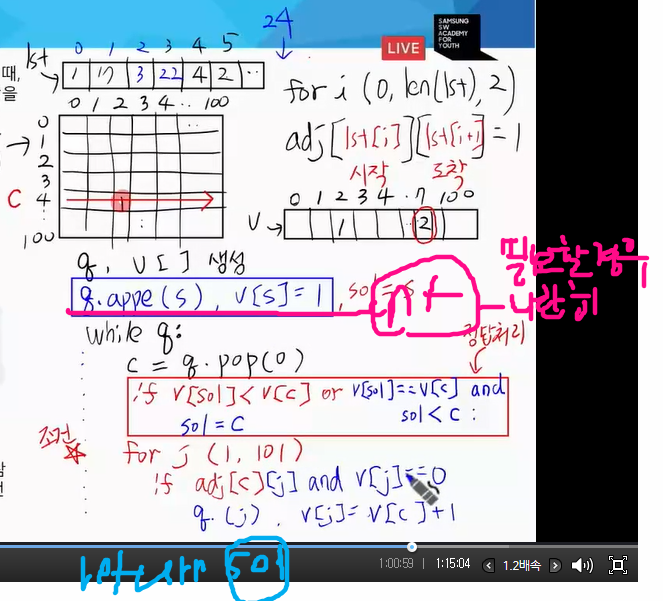 24
SAMSUNG
SW
ACADEMY
FOR
YOUTH
LIVE
0 1 2 3 4 5
때, lst
1 17 3 22 4 2 ..
을
0 1 2 3 4 .. 100
0
1
2
3
C 4 1
100
for i (0, len(lst), 2)
adj[lst[i]][lst[i+1]=1
시작 도착
0 1 2 3 4 .7 100
V 1 2
q, V[ ] 생성
q.appe(s), V[s]=1, sol=s
필요할경우
나란히
while q:
정답처리
c = q.pop(0)
if V[sol]<V[c] or V[sol]==V[c] and
sol=c sol<c:
조건
for j (1, 101)
if adj[c][j] and V[j]==0
q.(j), V[j]=V[c]+1
return sol
1:00:59 | 1:15:04 < 1.2배속 >